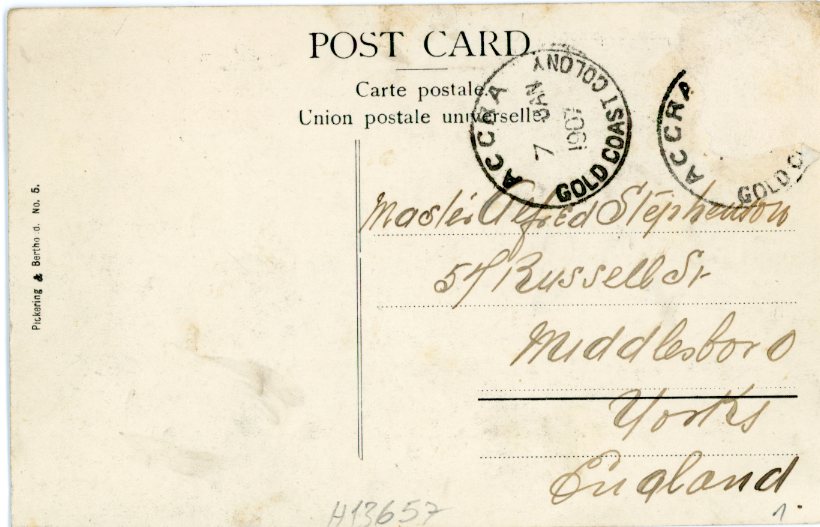 POST CARD
Carte postale.
Union postale universelle
ACCRA
GOLD COAST COLONY
7 JAN
1907
ACCRA
GOLD C
Pickering & Berthod. No. 5.
Master Alfred Stephenson
57 Russell St
Middlesboro
Yorks
England
H13657
1.